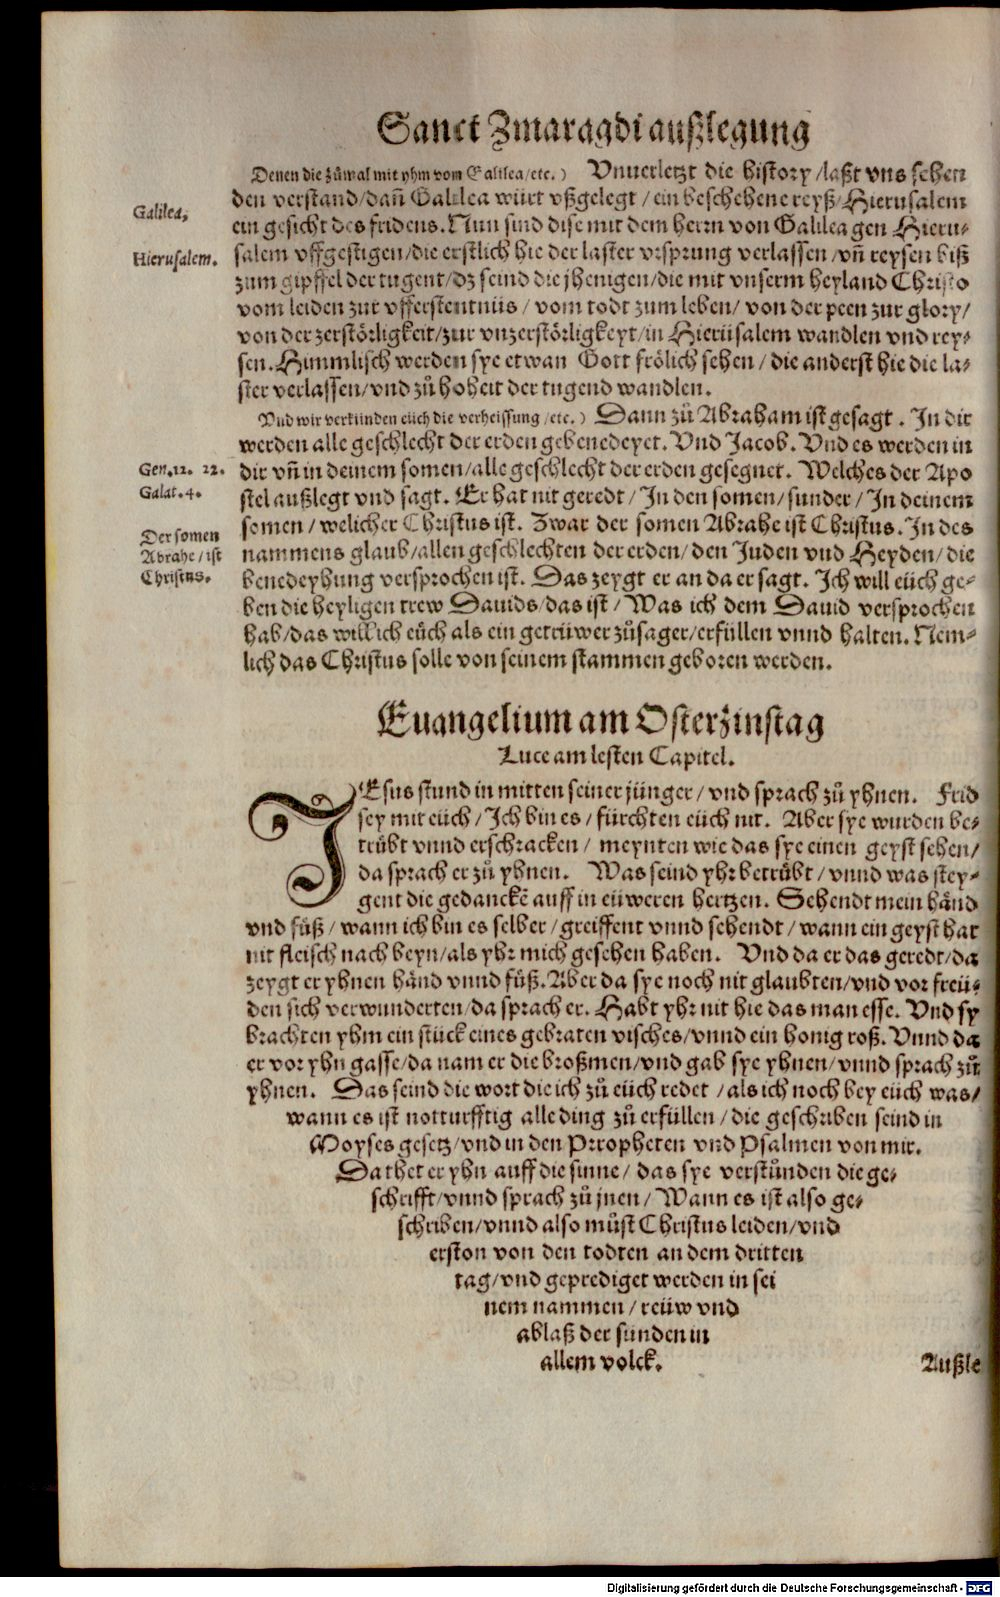 Sanct Zmaragdi außlegung
Denen die zůmal mit yhm vom Galilea/etc.) Vnuerletzt die history/laßt vns sehen
den verstand/dañ Galilea würt vßgelegt/ein beschehene reyß/Hierusalem
Galilea,
ein gesicht des fridens. Nun sind dise mit dem herrn von Galilea gen Hieru-
Hierusalem.
salem vffgestigen/die erstlich hie der laster vrsprung verlassen/vñ reysen biß
zum gipffel der tugent/dz seind die jhenigen/die mit vnserm heyland Christo
vom leiden zur vfferstentnüs/vom todt zum leben/von der peen zur glory/
von der zerstörligkeit/zur vnzerstörligkeyt/in Hierusalem wandlen vnd rey-
sen. Himmlisch werden sye etwan Gott frölich sehen/die anderst hie die la-
ster verlassen/vnd zů hoheit der tugend wandlen.
Vnd wir verkünden eüch die verheissung/etc.) Dann zů Abraham ist gesagt. In dir
werden alle geschlecht der erden gebenedeyet. Vnd Jacob. Vnd es werden in
Gen.12. 22.
dir vñ in deinem somen/alle geschlecht der erden gesegnet. Welches der Apo
Galat.4.
stel außlegt vnd sagt. Er hat nit geredt/In den somen/sunder/In deinem
somen/welicher Christus ist. Zwar der somen Abrahe ist Christus. In des
Der somen
Abrahe/ist
Christus.
nammens glaub/allen geschlechten der erden/den Juden vnd Heyden/die
benedeyhung versprochen ist. Das zeygt er an da er sagt. Ich will eüch ge-
ben die heyligen trew Dauids/das ist/Was ich dem Dauid versprochen
hab/das will ich eüch als ein getrüwer zůsager/erfüllen vnnd halten. Nem-
lich das Christus solle von seinem stammen geboren werden.
Euangelium am Osterzinstag
Luce am lesten Capitel.
JEsus stund in mitten seiner jünger/vnd sprach zů yhnen. Frid
sey mit eüch/Ich bin es/fürchten eüch nit. Aber sye wurden be-
trübt vnnd erschracken/meynten wie das sye einen geyst sehen/
da sprach er zů yhnen. Was seind yhr betrübt/vnnd was stey-
gent die gedanckē auff in eüweren hertzen. Sehendt mein händ
vnd füß/wann ich bin es selber/greiffent vnnd sehendt/wann ein geyst hat
nit fleisch nach beyn/als yhr mich gesehen haben. Vnd da er das geredt/da
zeygt er yhnen händ vnnd füß. Aber da sye noch nit glaubten/vnd vor freü-
den sich verwunderten/da sprach er. Habt yhr nit hie das man esse. Vnd sy
brachten yhm ein stück eines gebraten visches/vnnd ein honig roß. Vnnd da
er vor yhn gasse/da nam er die broßmen/vnd gab sye yhnen/vnnd sprach zů
yhnen. Das seind die wort die ich zů eüch redet/als ich noch bey eüch was/
wann es ist notturfftig alle ding zů erfüllen/die geschriben seind in
Moyses gesetz/vnd in den Prropheten vnd Psalmen von mir.
Da thet er yhn auff die sinne/das sye verstůnden die ge-
schrifft/vnnd sprach zů jnen/Wann es ist also ge-
schriben/vnnd also můst Christus leiden/vnd
erston von den todten an dem dritten
tag/vnd geprediget werden in sei
nem nammen/reüw vnd
ablaß der sunden in
allem volck.
Außle
Digitalisierung gefördert durch die Deutsche Forschungsgemeinschaft - DFG